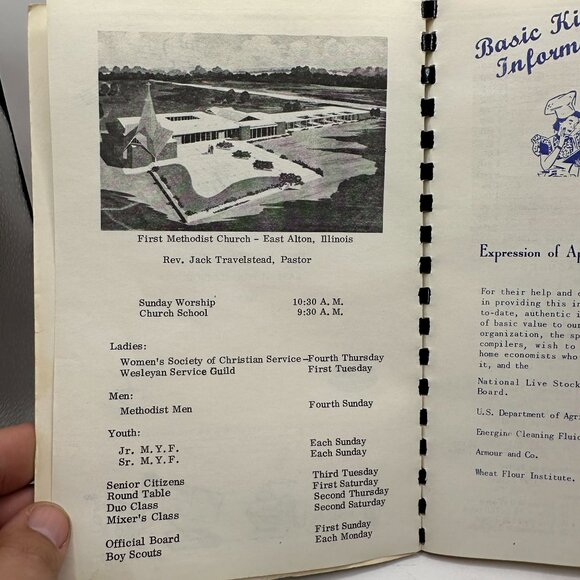 First Methodist Church - East Alton, Illinois
Rev. Jack Travelstead, Pastor
Sunday Worship 10:30 A. M.
Church School 9:30 A. M.
Ladies:
Women's Society of Christian Service-Fourth Thursday
Wesleyan Service Guild First Tuesday
Men:
Methodist Men Fourth Sunday
Youth:
Jr. M. Y. F. Each Sunday
Sr. M. Y. F. Each Sunday
Senior Citizens Third Tuesday
Round Table First Saturday
Duo Class Second Thursday
Mixer's Class Second Saturday
Official Board First Sunday
Boy Scouts Each Monday
Basic
Expression of
For their help and
in providing this
to-date, authentic
of basic value to our
organization, the
compilers, wish to
home economists who
it, and the
National Live Stock
Board.
U.S. Department of
Energine Cleaning
Armour and Co.
Wheat Flour Institute,